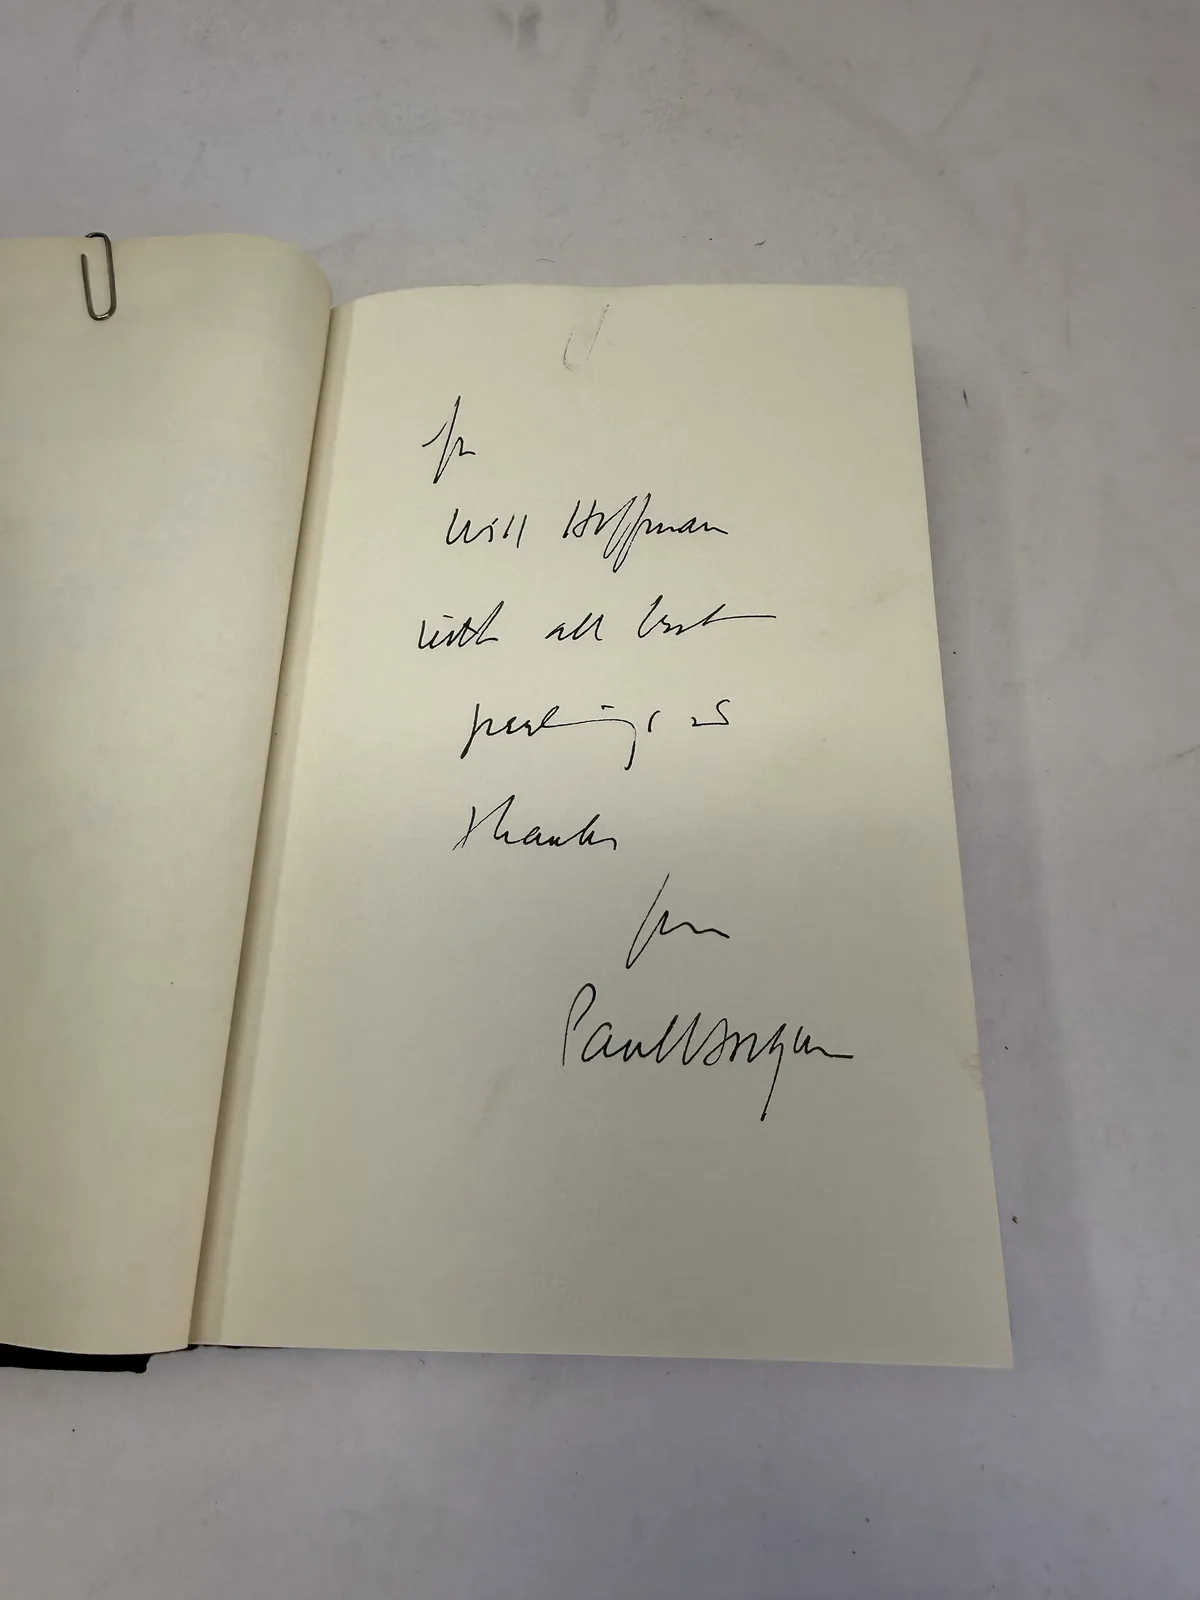 for
Will Hoffman
with all best
greetings &
thanks
from
Paul Horgan